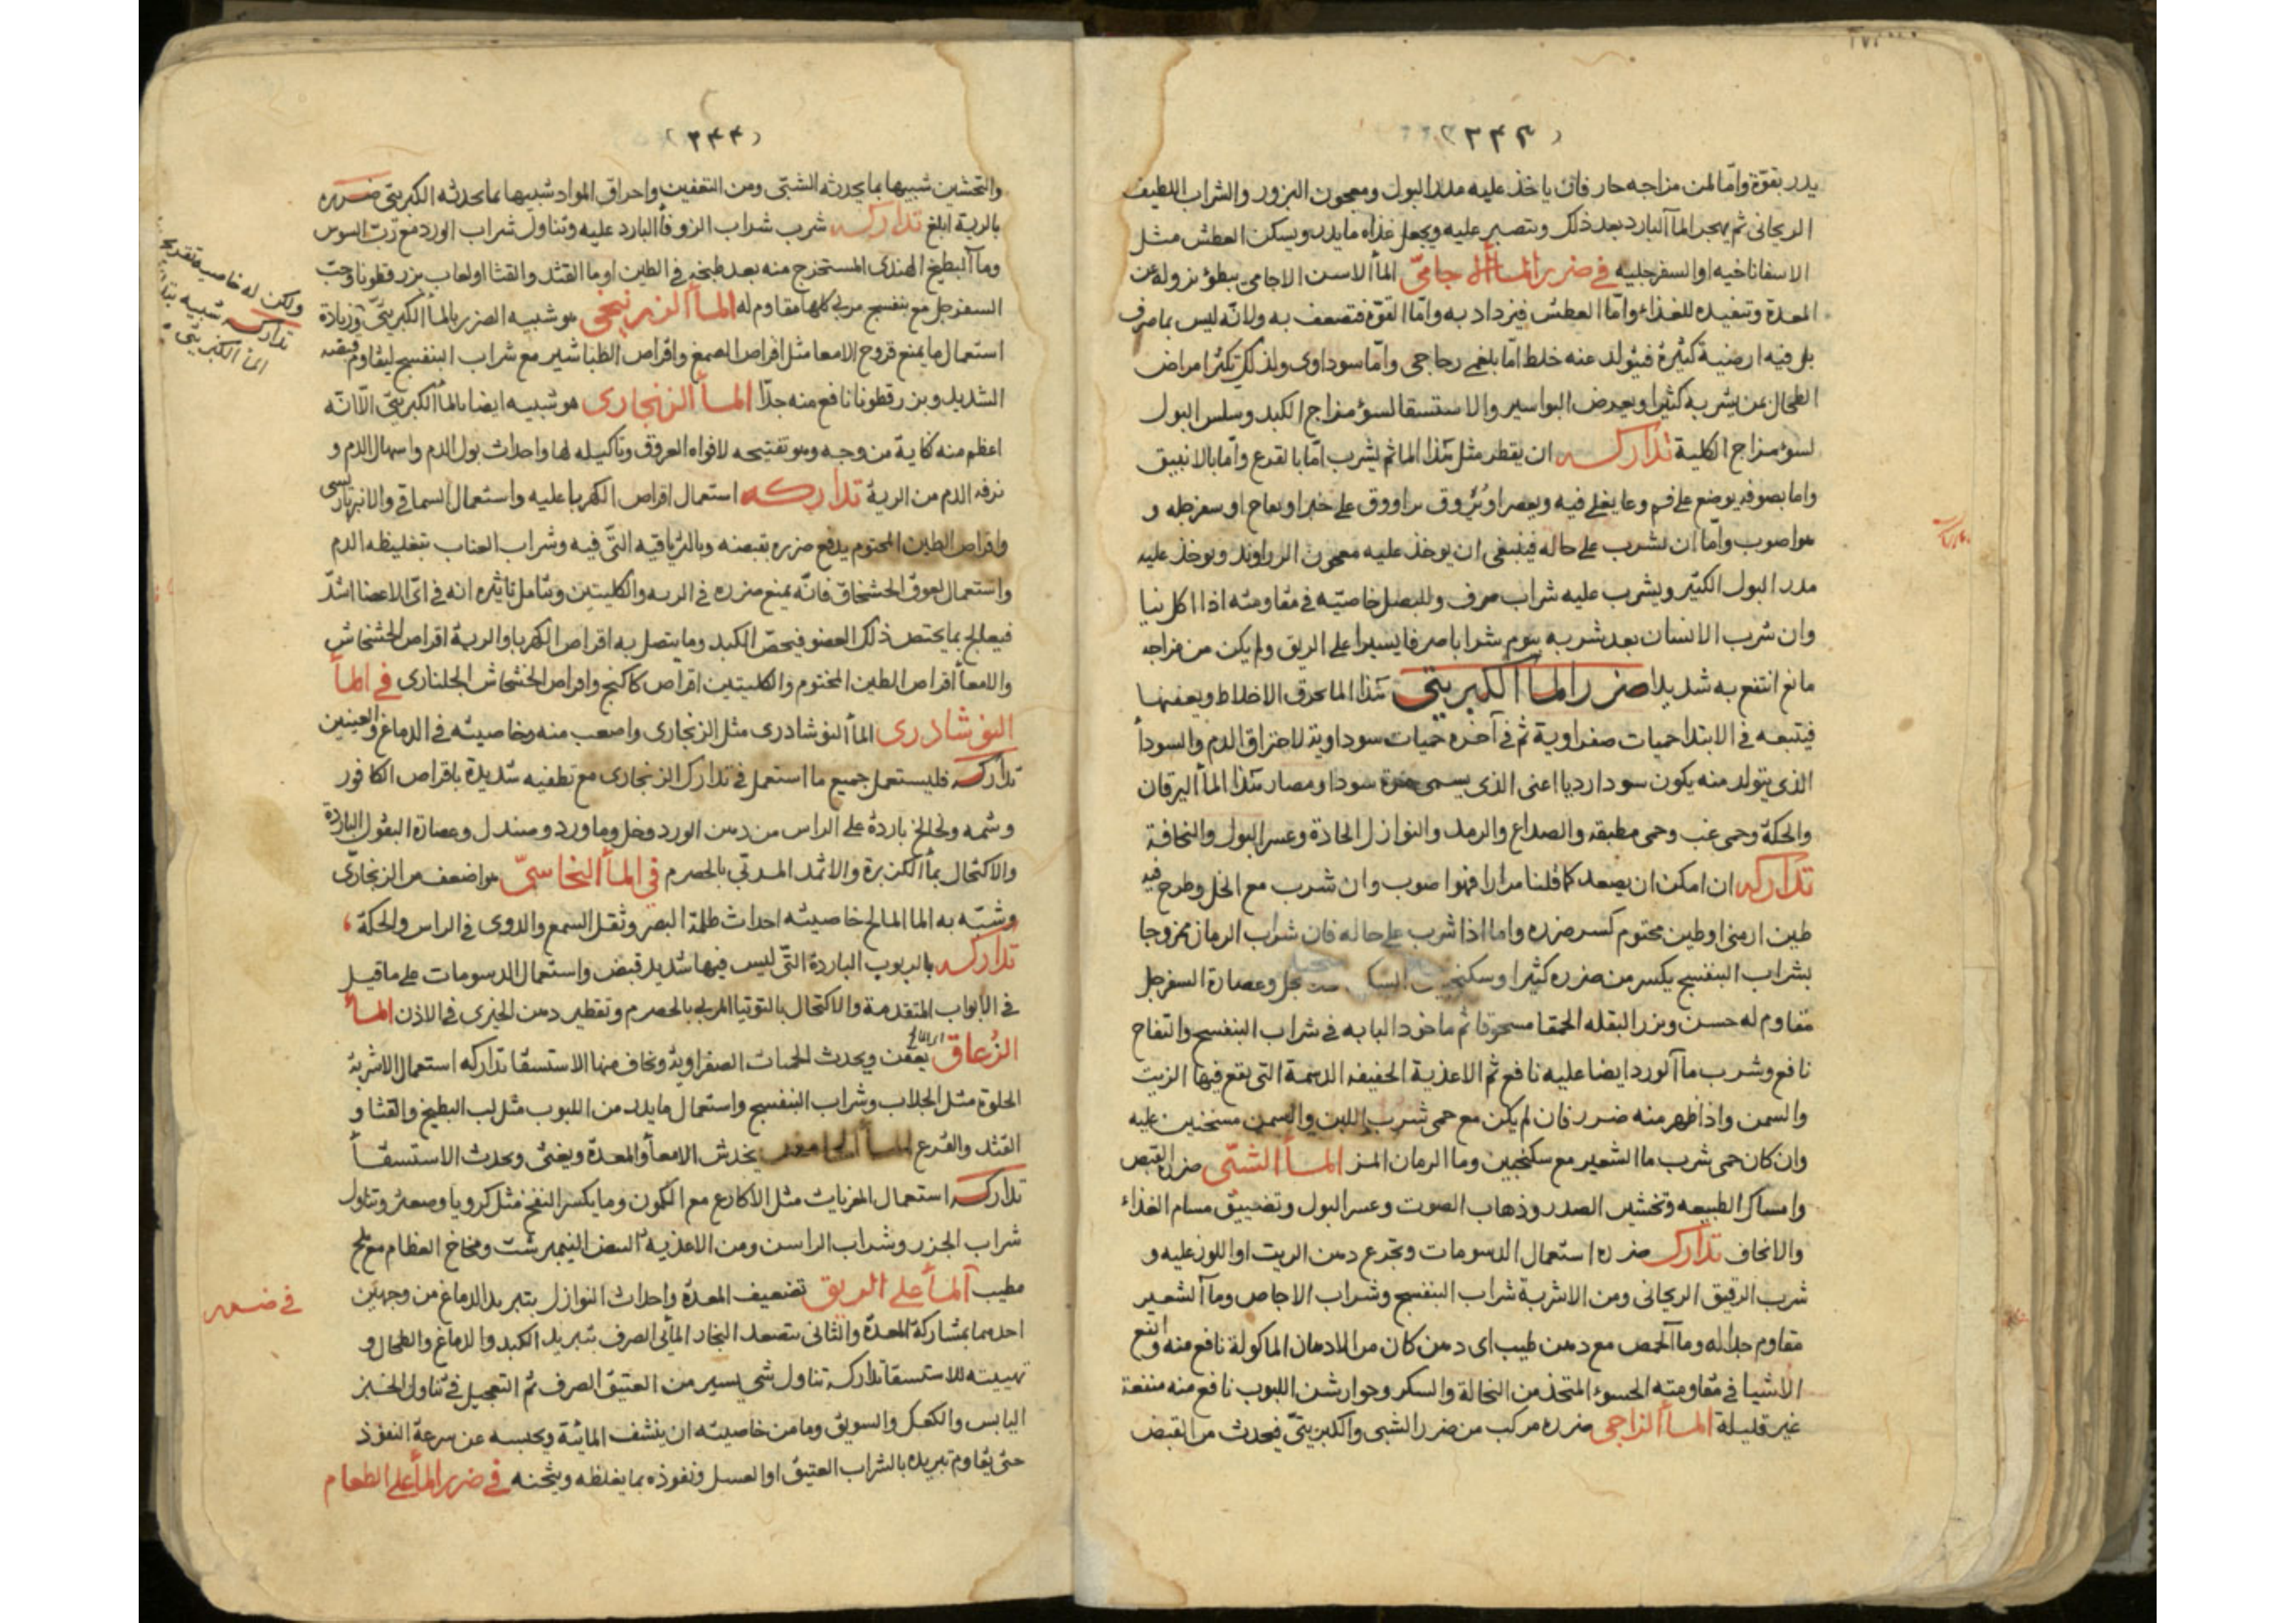 (٢٤٣)
يدر بقوة واما لمن مزاجه حار فان ياخذ عليه مدر البول ومعجون البزور والشراب اللطيف
الريحانى ثم يهجر الماء البارد بعد ذلك ويتصبر عليه ويجعل غذاه ما يدر ويسكن العطش مثل
الاسفاناخيه او السفرجليه في ضرر الماء الاجاميّ الماء الاسن الاجامى ببطؤ نزوله عن
المعدة وتنفيده للغذاء واما العطش فيزداد به واما القوة فتضعف به ولانه ليس بماء صرف
بل فيه ارضية كثيرة فيتولد عنه خلط اما بلغمى زجاجى واما سوداوى ولذلك تكثر امراض
الطحال عن يشربه كثيرا ويعرض البواسير والاستسقا لسؤ مزاج الكبد وسلس البول
لسوء مزاج الكلية تداركه ان يقطر مثل هذا الماء ثم يشرب اما بالقرع واما بالانبيق
واما بصوفه يوضع على فم وعا يغلى فيه ويعصر او يروق براووق على خبز او تفاح او سفرجله و
هو اصوب واما ان يشرب على حاله فينبغى ان يوخذ عليه معجون الزراوند ويوخذ عليه
مدر البول الكثير ويشرب عليه شراب صرف وللبصل خاصيته في مقاومته اذا اكل نيا
وان شرب الانسان بعد شربه بيوم شرابا صرفا يسيرا على الريق ولم يكن من مزاجه
مانع انتفع به شديدا ضرر الماء الكبريتى هذا الما يحرق الاخلاط ويعفنها
فيتبعه في الابتدا حميات صفراوية ثم في آخره حميات سوداوية لاحتراق الدم والسودا
الذى يتولد منه يكون سودا رديا اعنى الذى يسمى مرة سودا ومضار هذا الماء اليرقان
والحكة وحمى غب وحمى مطبقه والصداع والرمد والنوازل الحادة وعسر البول والنحافة
تداركه ان امكن ان يصعد كما قلنا مرارا فهو اصوب وان شرب مع الخل وطرح فيه
طين ارمنى او طين مختوم كسر ضرره واما اذا شرب على حاله فان شراب الرمان ممزوجا
بشراب البنفسج يكسر من ضرره كثيرا وعصارة السفرجل
مقاوم له حسن وبزر البقله الحمقا مسحوقا ثم ماخوذا لبابه في شراب البنفسج والتفاح
نافع وشرب ماء الورد ايضا عليه نافع ثم الاغذية الخفيفه الدسمة التى يقع فيها الزيت
والسمن واذا ظهر منه ضرر فان لم يكن مع حمى شرب اللبن والسمن مسخنين عليه
وان كان حمى شرب ماء الشعير مع سكنجبين وما الرمان المز الماء الشبّى ضرره القبض
وامساك الطبيعه وتخشين الصدر وذهاب الصوت وعسر البول وتضييق مسام الغذاء
والانحاف تدارك ضرره استعمال الدسومات وتجرع دهن الزيت او اللوز عليه و
شرب الرقيق الريحانى ومن الاشربة شراب البنفسج وشراب الاجاص وماء الشعير
مقاوم جدا له وماء الحمص مع دهن طيب اى دهن كان من الادهان الماكولة نافع منه وانفع
الاشيا في مقاومته الحسوء المتخذ من النخالة والسكر وجوارشن اللبوب نافع منه منفعة
غير قليلة الماء الزاجى ضرره مركب من ضرر الشبى والكبريتىّ فيحدث من القبض
(٢٤٤)
والتخشين شبيها بما يحدثه الشبّى ومن التعفين واحراق المواد شبيها بما يحدثه الكبريتى ضرره
بالرية ابلغ تداركه شرب شراب الزوفا البارد عليه وتناول شراب الورد مع رب السوس
وماء البطيخ الهندى المستخرج منه بعد طبخه في الطين او ما القثد والقثا او لعاب بزر قطونا وحب
السفرجل مع بنفسج مربى كلها مقاوم له الماء الزرنيخى هو شبيه الضرر بالماء الكبريتىّ وزيادة
استعمال ما يمنع قروح الامعا مثل اقراص الصمغ واقراص الطباشير مع شراب البنفسج ليقاوم قبضه
الشديد وبزر قطونا نافع منه جدا الماء الزنجارى هو شبيه ايضا بالماء الكبريتى الا انه
اعظم منه نكاية من وجه وهو تفتيحه لافواه العروق وتاكيله لها واحداث بول الدم واسهال الدم و
نزفه الدم من الرية تداركه استعمال اقراص الكهربا عليه واستعمال السماقى والانبرباريسى
واقراص الطين المختوم يدفع ضرره بقبضه وبالترياقيه التى فيه وشراب العناب بتغليظه الدم
واستعمال لعوق الخشخاش فانه يمنع ضرره في الريه والكليتين ويتامل تاثيره انه في اى الاعضا اشدّ
فيعالج بما يختص ذلك العضو فيخص الكبد وما يتصل به اقراص الكهربا والرية اقراص الخشخاش
والامعا اقراص الطين المختوم والكليتين اقراص كاكنج واقراص الخشخاش الجلنارى في الماء
النوشادرى الماء النوشادرى مثل الزنجارى واصعب منه وخاصيته في الدماغ والعينين
تداركه فليستعمل جميع ما استعمل في تدارك الزنجارى مع تطفيه شديدة باقراص الكافور
وشمه ولخالخ باردة على الراس من دهن الورد وخل وما ورد وصندل وعصارة البقول الباردة
والاكتحال بماء الكزبرة والاثمد المربّى بالحصرم في الماء النحاسىّ هو اضعف من الزنجارى
وشبّه به الما المالح خاصيته احداث ظلمة البصر وثقل السمع والدوى في الراس والحكة
تداركه بالربوب الباردة التى ليس فيها شديد قبض واستعمال الدسومات على ما قيل
في الابواب المتقدمة والاكتحال بالتوتيا المربى بالحصرم وتقطير دهن الخيرى في الاذن الماء
الزُعاق يعفن ويحدث الحميات الصفراوية ويخاف منها الاستسقا تداركه استعمال الاشربة
الحلوة مثل الجلاب وشراب البنفسج واستعمال ما يدر من اللبوب مثل لب البطيخ والقثا و
القثد والقرع الماء الجامد يخدش الامعاء والمعدة ويغثى ويحدث الاستسقا
تداركه استعمال المغريات مثل الاكارع مع الكمون وما يكسر النفخ مثل كرويا وصعتر وتناول
شراب الجزر وشراب الراسن ومن الاغذيه البيض النيمبرشت ومخاخ العظام مع ملح
مطيب الماء على الريق تضعيف المعدة واحداث النوازل بتبريد الدماغ من وجهين
احدهما بمشاركة المعدة والثانى بتصعد البخار المائى الصرف بتبريد الكبد والدماغ والطحال و
تهيئته للاستسقا تداركه تناول شى يسير من العتيق الصرف ثم التعجيل في تناول الخبز
اليابس والكعك والسويق وما من خاصيته ان ينشف المائية ويحبسه عن سرعة النفوذ
حتى يقاوم تبريده بالشراب العتيق او العسل ونفوذه بما يغلظه ويثخنه في ضرر الماء على الطعام
ولكن له خاصية
تداركه شبيه
الماء الكبريتى
في ضرر